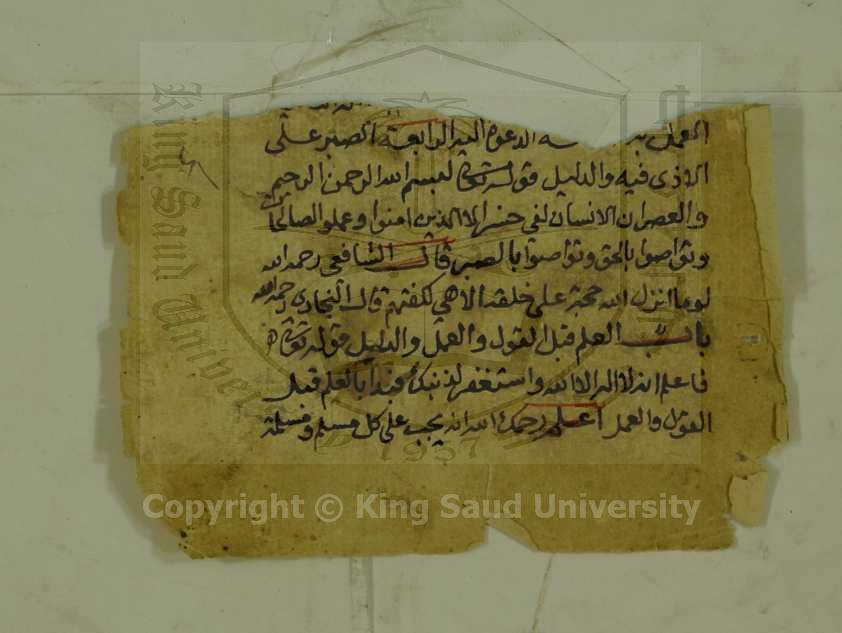 العمل به الدعوة اليه الرابعة الصبر على
الاذى فيه والدليل قوله تعالى بسم الله الرحمن الرحيم
والعصر ان الانسان لفي خسر الا الذين امنوا وعملوا الصالحات
وتواصوا بالحق وتواصوا بالصبر قال الشافعي رحمه الله
لو ما انزل الله حجة على خلقه الا هي لكفتهم قال البخاري رحمه الله
باب العلم قبل القول والعمل والدليل قوله تعالى
فاعلم انه لا اله الا الله واستغفر لذنبك فبدا بالعلم قبل
القول والعمل اعلم رحمك الله انه يجب على كل مسلم ومسلمة
King Saud University
1957
Copyright © King Saud University